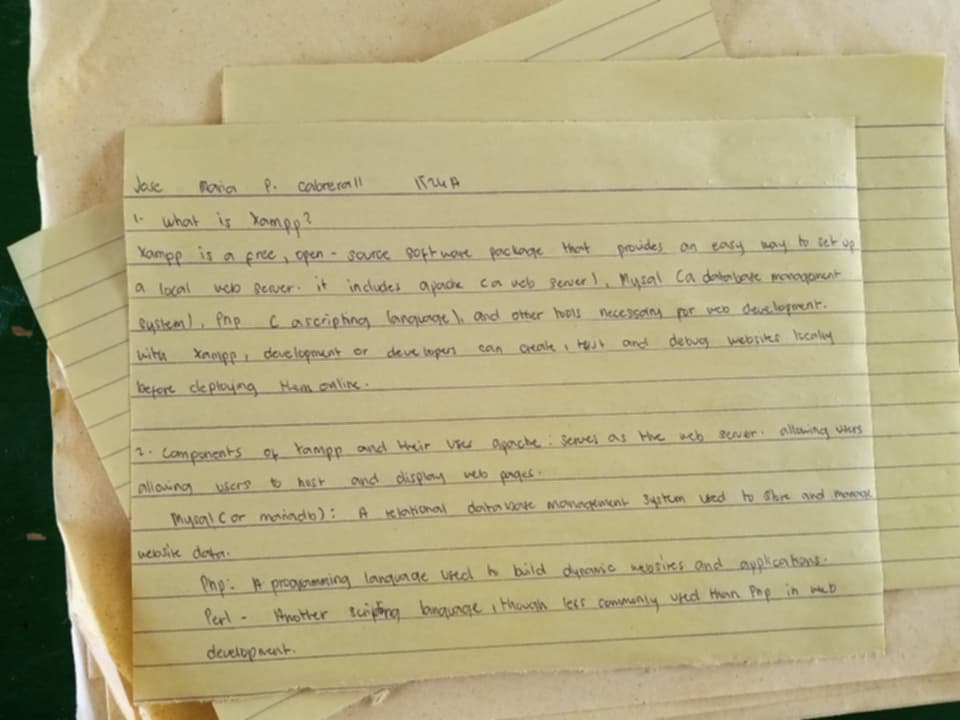 Jose Maria P. Cabrera II IT24A
1. What is Xampp?
Xampp is a free, open - source software package that provides an easy way to set up
a local web server. it includes apache (a web server), Mysql (a database management
system), Php ( a scripting language), and other tools necessary for web development.
with Xampp, development or developers can create, test and debug websites locally
before deploying them online.
2. Components of Xampp and their uses apache: serves as the web server. allowing users
allowing users to host and display web pages.
Mysql (or mariadb): A relational database management system used to store and manage
website data.
Php: A programming language used to build dynamic websites and applications.
Perl - Another scripting language, though less commonly used than Php in web
development.